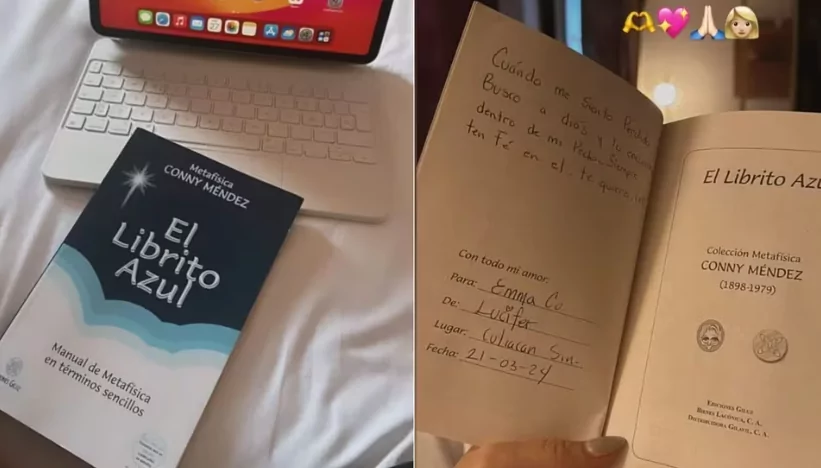 Metafísica
CONNY MÉNDEZ
El
Librito
Azul
Manual de Metafísica
en términos sencillos
Cuándo me siento Perdido
Busco a dios y lo
dentro de mi Pecho. Siempre
ten Fé en el. te quiero
Con todo mi amor:
Para: Emma Co
De: Lucifer
Lugar: Culiacan Sin.
Fecha: 21-03-24
El Librito Azu
Colección Metafísica
CONNY MÉNDEZ
(1898-1979)
EDICIONES GILUZ
BIENES LACÓNICA, C. A.
DISTRIBUIDORA GILAVIL, C. A.